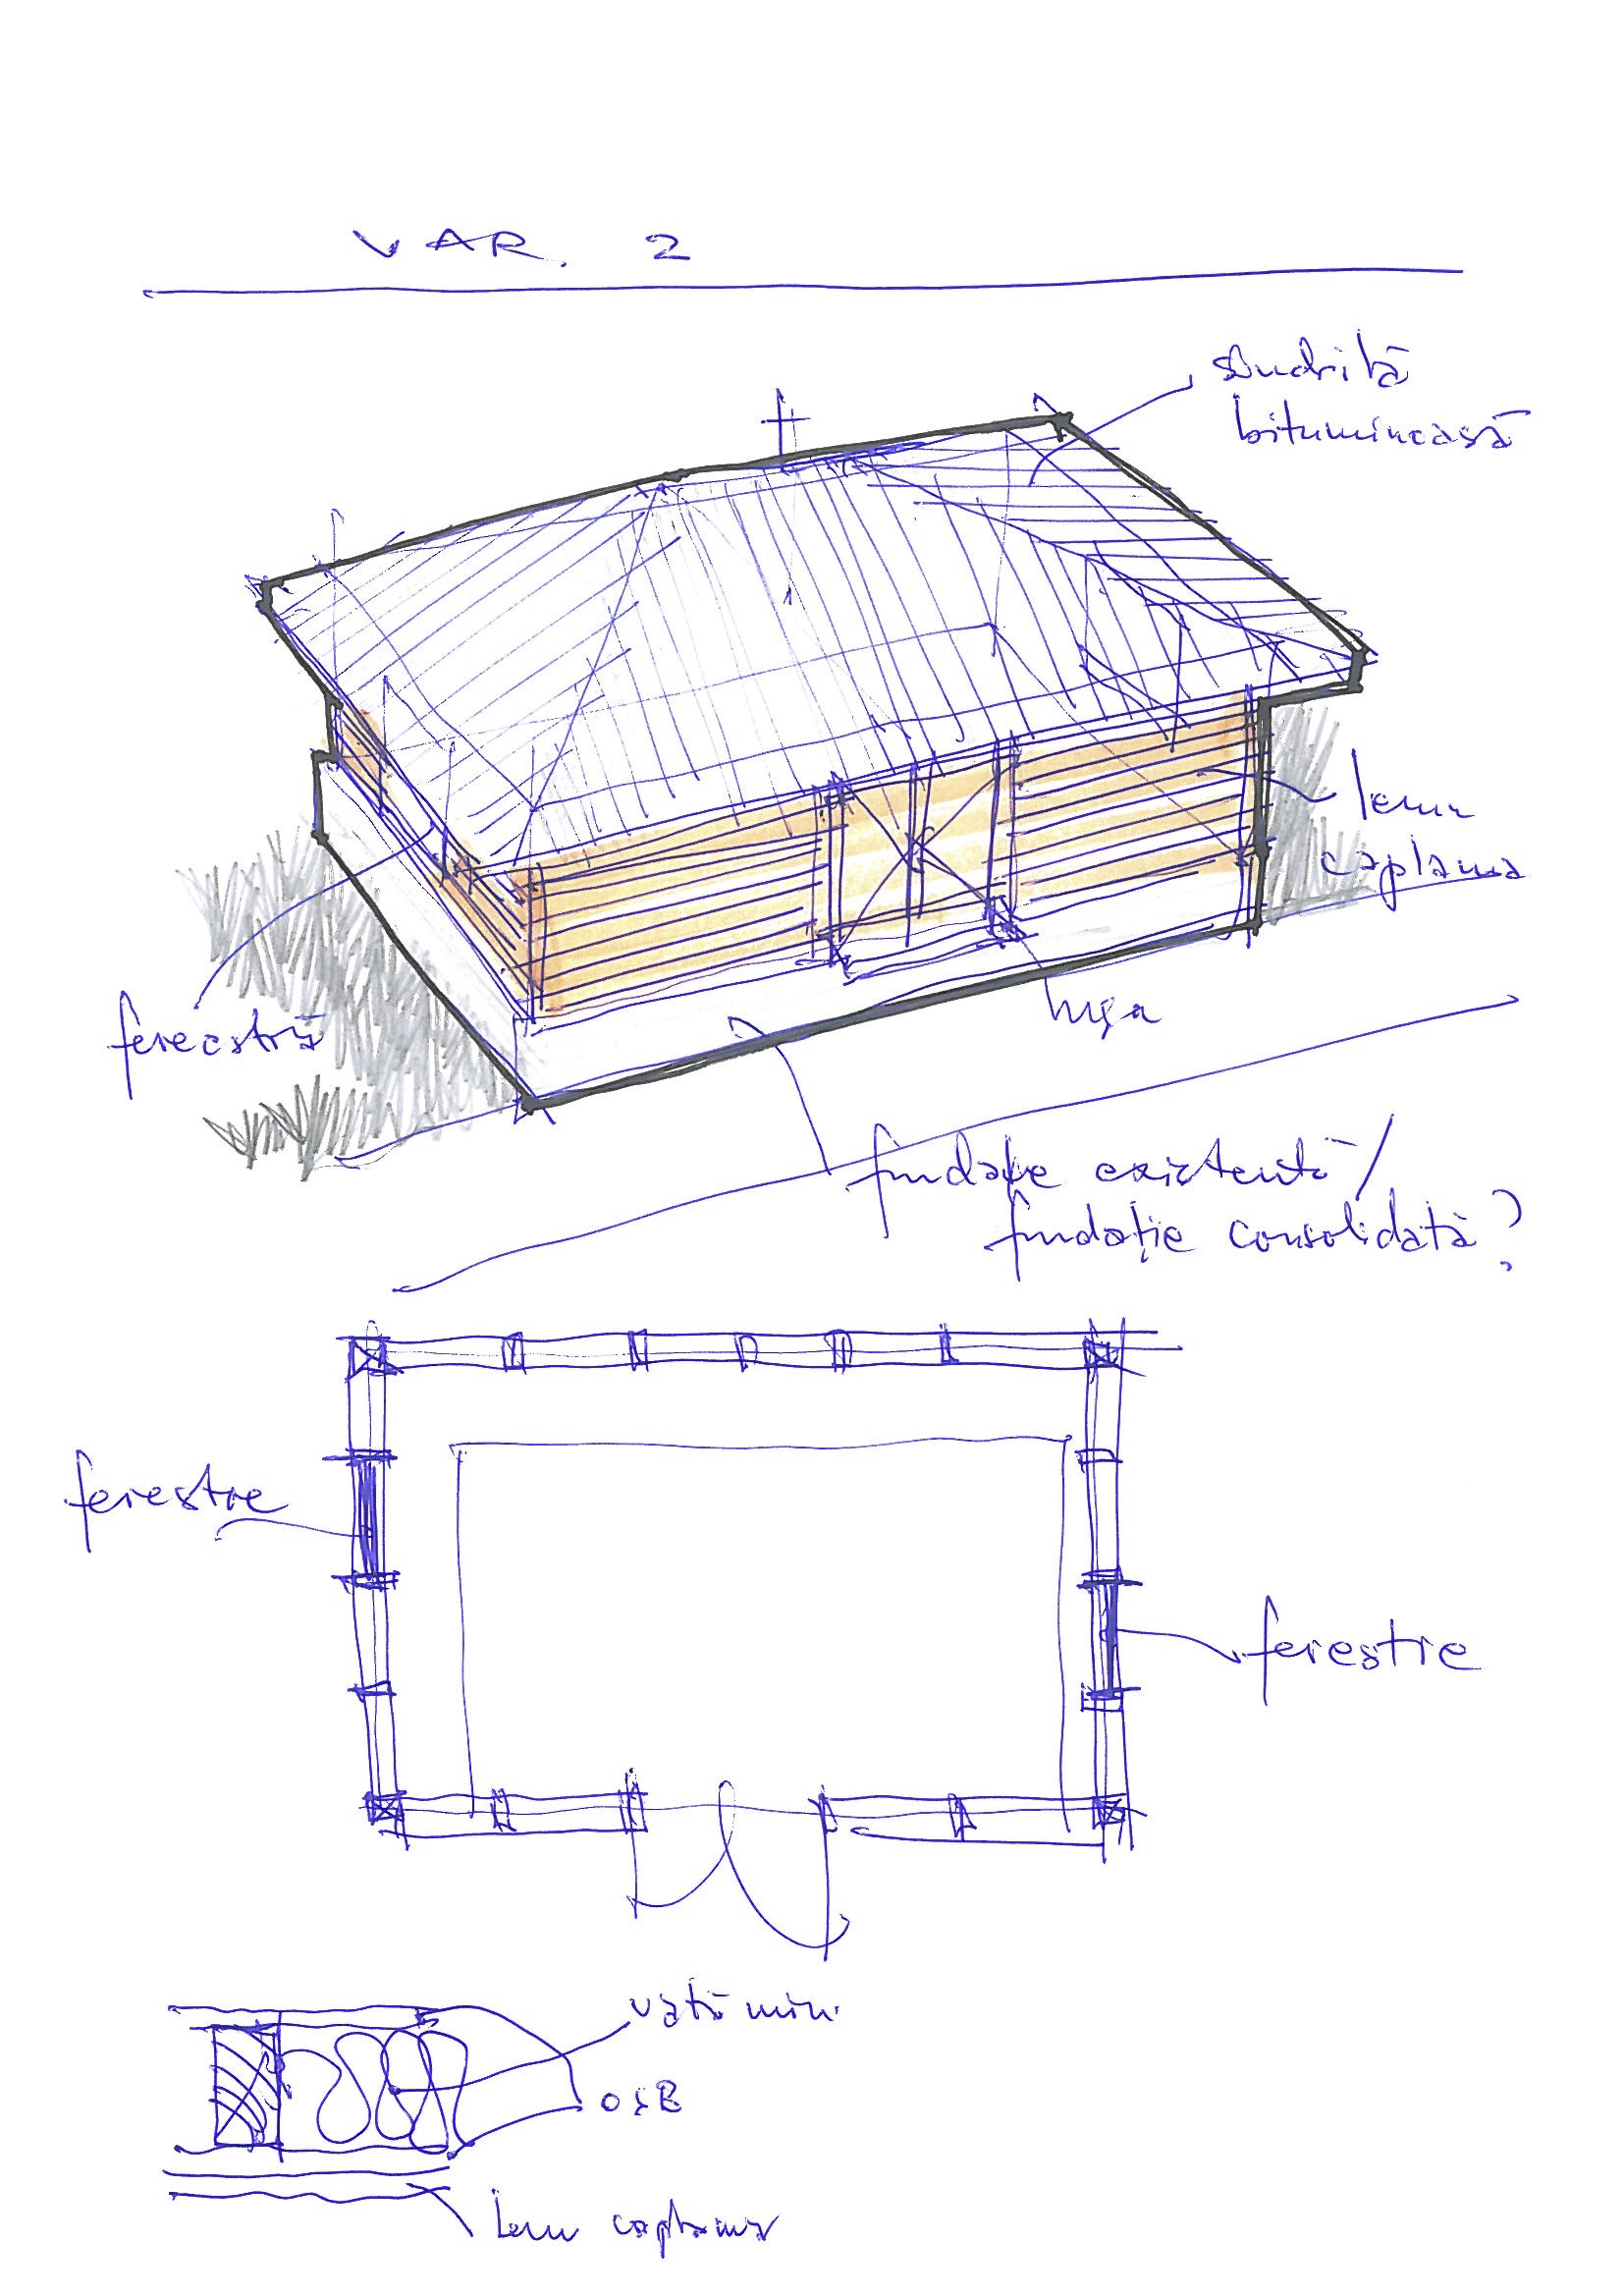 VAR. 2
șindrilă
bituminoasă
lemn
caplama
fereastră
ușa
fundație existentă/
fundație consolidată?
ferestre
ferestre
vată min.
OSB
lemn caplama